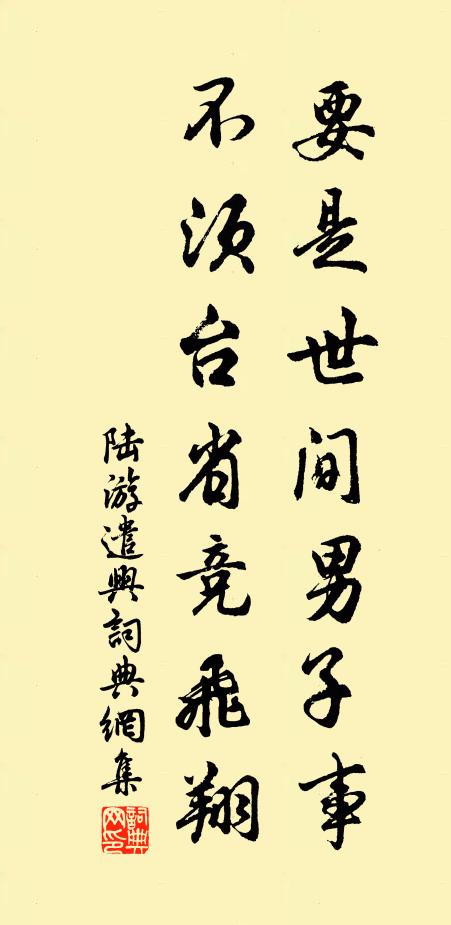 要是世间男子事
不须台省竞飞翔
陆游遣興詞典網集
詞典网印